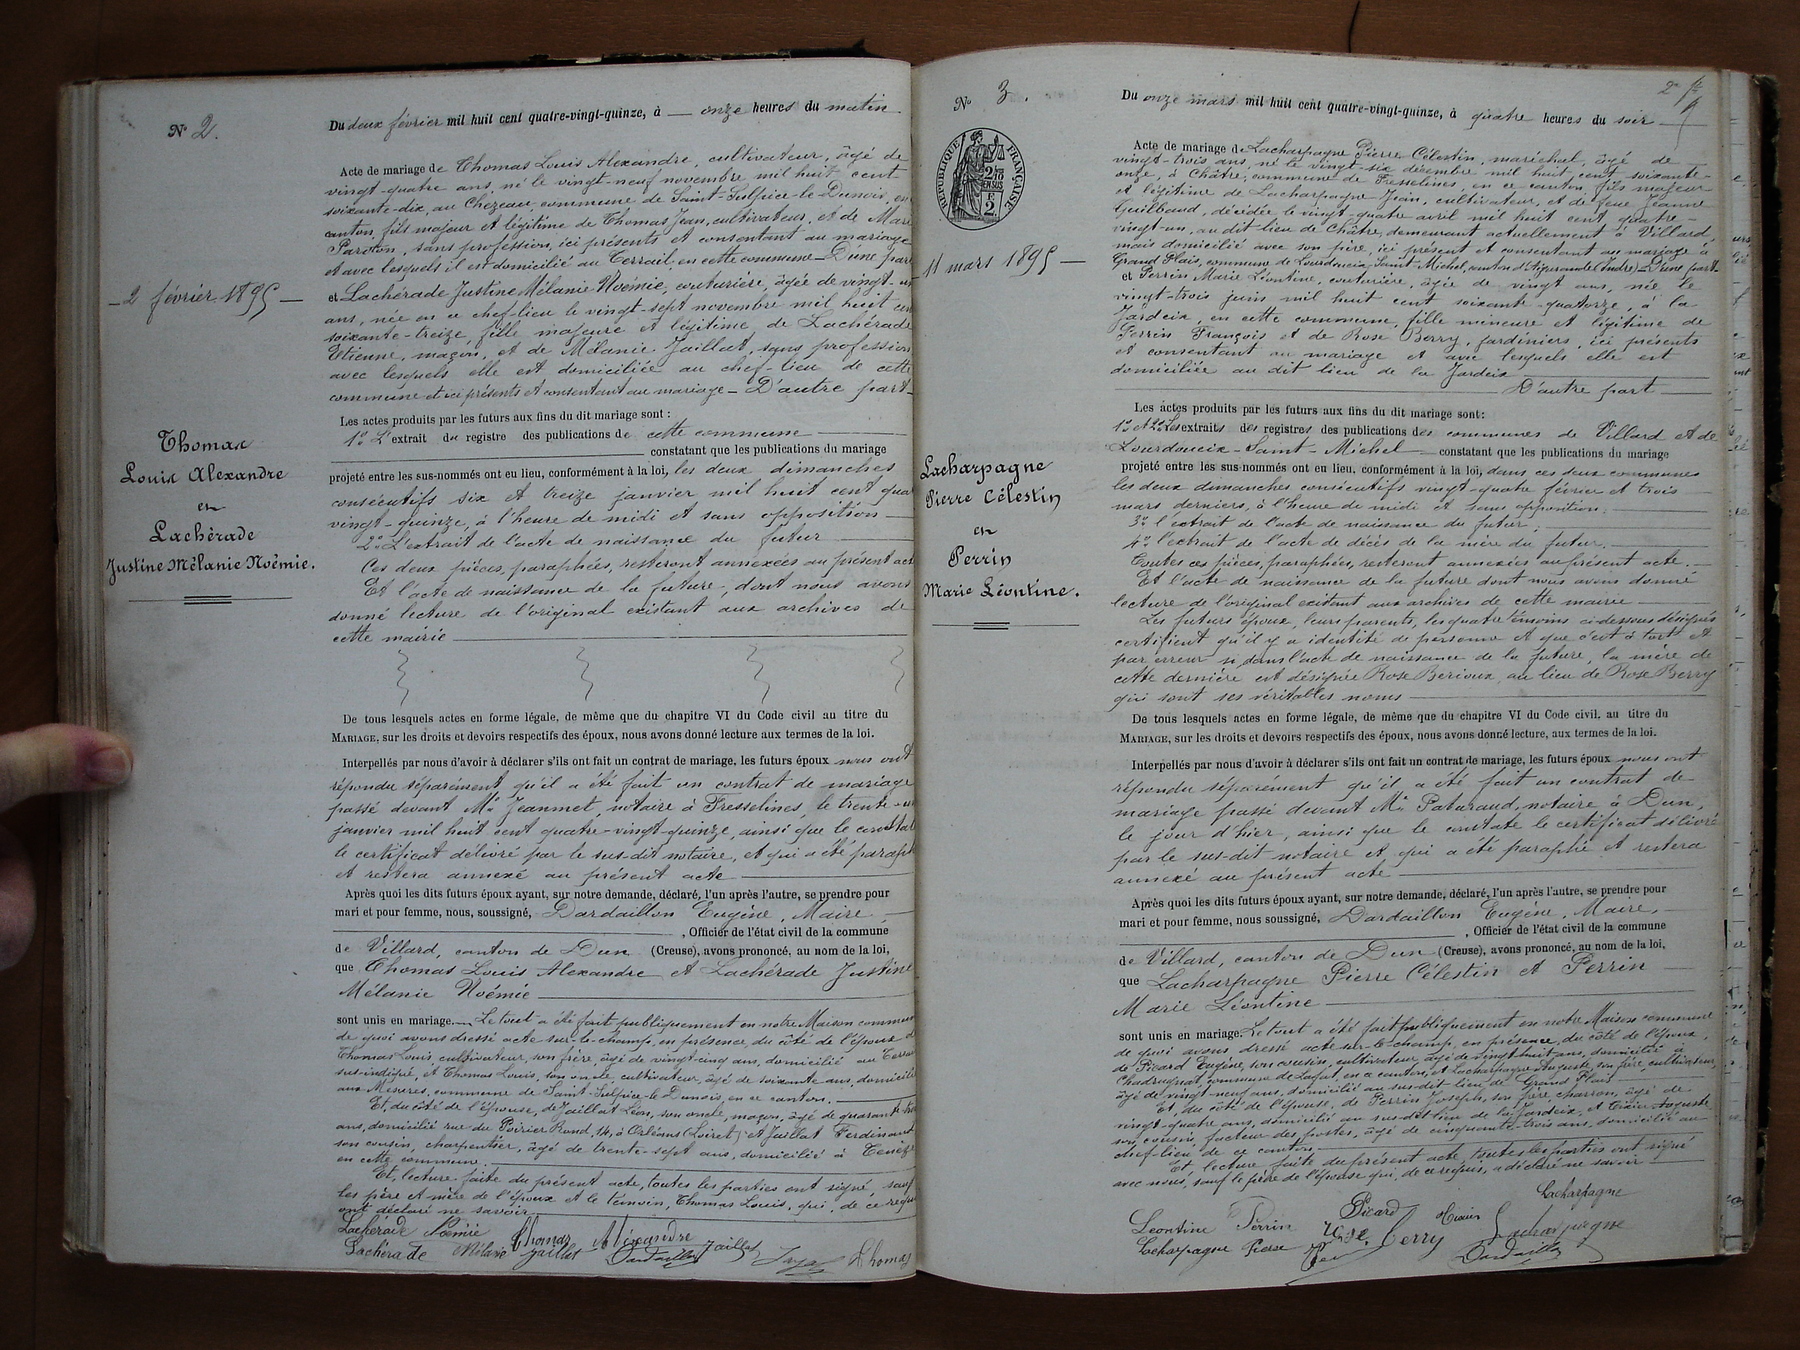 N° 2.
2 février 1895
Thomas
Louis Alexandre
en
Lachérade
Justine Mélanie Noémie.
Du deux février mil huit cent quatre-vingt-quinze, à onze heures du matin
Acte de mariage de Thomas Louis Alexandre, cultivateur, âgé de
vingt-quatre ans, né le vingt-neuf novembre mil huit cent
soixante-dix, au Chezeau, commune de Saint-Sulpice-le-Dunois, en
canton, fils majeur et légitime de Thomas Jean, cultivateur, et de Marie
Paroton, sans profession, ici présents et consentant au mariage
et avec lesquels il est domicilié au Terrail, en cette commune – D'une part
et Lachérade Justine Mélanie Noémie, couturière, âgée de vingt-un
ans, née en ce chef-lieu le vingt-sept novembre mil huit cent
soixante-treize, fille majeure et légitime de Lachérade
Etienne, maçon, et de Mélanie Jaillat, sans profession
avec lesquels elle est domiciliée au chef-lieu de cette
commune et ici présents et consentant au mariage – D'autre part
Les actes produits par les futurs aux fins du dit mariage sont :
1° L'extrait du registre des publications de cette commune
constatant que les publications du mariage
projeté entre les sus-nommés ont eu lieu, conformément à la loi, les deux dimanches
consécutifs six et treize janvier mil huit cent qua
vingt-quinze, à l'heure de midi et sans opposition
2° L'extrait de l'acte de naissance du futur
Ces deux pièces, paraphées, resteront annexées au présent act
Et l'acte de naissance de la future, dont nous avons
donné lecture de l'original existant aux archives de
cette mairie
De tous lesquels actes en forme légale, de même que du chapitre VI du Code civil au titre du
MARIAGE, sur les droits et devoirs respectifs des époux, nous avons donné lecture aux termes de la loi.
Interpellés par nous d'avoir à déclarer s'ils ont fait un contrat de mariage, les futurs époux nous ont
répondu séparément qu'il a été fait un contrat de mariage
passé devant Me Jeannet, notaire à Fresselines, le trente-un
janvier mil huit cent quatre-vingt-quinze, ainsi que le constate
le certificat délivré par le sus-dit notaire, et qui a été paraphé
et restera annexé au présent acte
Après quoi les dits futurs époux ayant, sur notre demande, déclaré, l'un après l'autre, se prendre pour
mari et pour femme, nous, soussigné, Dardaillon Eugène, Maire,
, Officier de l'état civil de la commune
de Villard, canton de Dun (Creuse), avons prononcé, au nom de la loi,
que Thomas Louis Alexandre et Lachérade Justine
Mélanie Noémie
sont unis en mariage. Le tout a été fait publiquement en notre Maison commune
de quoi avons dressé acte sur-le-champ, en présence, du côté de l'époux d
Thomas Louis, cultivateur, son frère, âgé de vingt-cinq ans, domicilié au Terrail
sus-indiqué, et Thomas Louis, son oncle, cultivateur, âgé de soixante ans, domicilié
aux Mesures, commune de Saint-Sulpice-le-Dunois, en ce canton.
Et, du côté de l'épouse, de Jaillat Léon, son oncle, maçon, âgé de quarante-
ans, domicilié rue du Poirier Rond, 14, à Orléans (Loiret), et Jaillat Ferdinand
son cousin, charpentier, âgé de trente-sept ans, domicilié à
en cette commune.
Et, lecture faite du présent acte, toutes les parties ont signé sauf
les père et mère de l'époux et le témoin, Thomas Louis, qui, de ce requis
ont déclaré ne savoir
Lachérade Noémie Thomas Alexandre
Lachérade Mélanie Jaillat Dardaillon Jaillat Thomas
N° 3.
RÉPUBLIQUE FRANÇAISE
11 mars 1895
Lacharpagne
Pierre Célestin
en
Perrin
Marie Léontine.
Du onze mars mil huit cent quatre-vingt-quinze, à quatre heures du soir
Acte de mariage de Lacharpagne Pierre Célestin, maréchal, âgé de
vingt-trois ans, né le vingt-six décembre mil huit cent soixante-
onze, à Châtre, commune de Fresselines, en ce canton, fils majeur
et légitime de Lacharpagne Jean, cultivateur, et de feue Jeanne
Guilbaud, décédée le vingt-quatre avril mil huit cent quatre-
vingt-un, au dit lieu de Châtre, demeurant actuellement à Villard,
mais domicilié avec son père, ici présent et consentant au mariage à
Grand Plaix, commune de Lourdoueix-Saint-Michel, canton d'Aigurande (Indre) – D'une part
et Perrin Marie Léontine, couturière, âgée de vingt ans, née le
vingt-trois juin mil huit cent soixante-quatorze, à la
Jardeix, en cette commune, fille mineure et légitime de
Perrin François et de Rose Berry, jardiniers, ici présents
et consentant au mariage et avec lesquels elle est
domiciliée au dit lieu de la Jardeix
D'autre part
Les actes produits par les futurs aux fins du dit mariage sont:
1° et 2° Les extraits des registres des publications des communes de Villard et de
Lourdoueix-Saint-Michel constatant que les publications du mariage
projeté entre les sus-nommés ont eu lieu, conformément à la loi, dans ces deux communes
les deux dimanches consécutifs vingt-quatre février et trois
mars derniers, à l'heure de midi et sans opposition.
3° l'extrait de l'acte de naissance du futur;
4° l'extrait de l'acte de décès de la mère du futur.
Toutes ces pièces, paraphées, resteront annexées au présent acte.
Et l'acte de naissance de la future dont nous avons donné
lecture de l'original existant aux archives de cette mairie
Les futurs époux, leurs parents, les quatre témoins ci-dessous désignés
certifient qu'il y a identité de personne et que c'est à tort et
par erreur si, dans l'acte de naissance de la future, la mère de
cette dernière est désignée Rose Berioux, au lieu de Rose Berry
qui sont ses véritables noms
De tous lesquels actes en forme légale, de même que du chapitre VI du Code civil, au titre du
MARIAGE, sur les droits et devoirs respectifs des époux, nous avons donné lecture, aux termes de la loi.
Interpellés par nous d'avoir à déclarer s'ils ont fait un contrat de mariage, les futurs époux nous ont
répondu séparément qu'il a été fait un contrat de
mariage passé devant Me Paturaud, notaire à Dun,
le jour d'hier, ainsi que le constate le certificat délivré
par le sus-dit notaire et qui a été paraphé et restera
annexé au présent acte
Après quoi les dits futurs époux ayant, sur notre demande, déclaré, l'un après l'autre, se prendre pour
mari et pour femme, nous, soussigné, Dardaillon Eugène, Maire,
, Officier de l'état civil de la commune
de Villard, canton de Dun (Creuse), avons prononcé, au nom de la loi,
que Lacharpagne Pierre Célestin et Perrin
Marie Léontine
sont unis en mariage. Le tout a été fait publiquement en notre Maison commune
de quoi avons dressé acte sur-le-champ, en présence, du côté de l'époux,
de Picard Eugène, son cousin, cultivateur, âgé de vingt-huit ans, domicilié à
commune de Lafat, en ce canton, et Lacharpagne Auguste, son frère, cultivateur,
âgé de vingt-neuf ans, domicilié au sus-dit lieu de Grand Plaix
Et, du côté de l'épouse, de Perrin Joseph, son frère, charron, âgé de
vingt-quatre ans, domicilié au sus-dit lieu de la Jardeix, et Auguste
son cousin, facteur des postes, âgé de cinquante-trois ans, domicilié au
chef-lieu de ce canton
Et, lecture faite du présent acte, toutes les parties ont signé
avec nous, sauf le père de l'épouse qui, de ce requis, a déclaré ne savoir
Lacharpagne
Léontine Perrin Picard
Lacharpagne Pierre Rose Berry Lacharpagne
Dardaillon